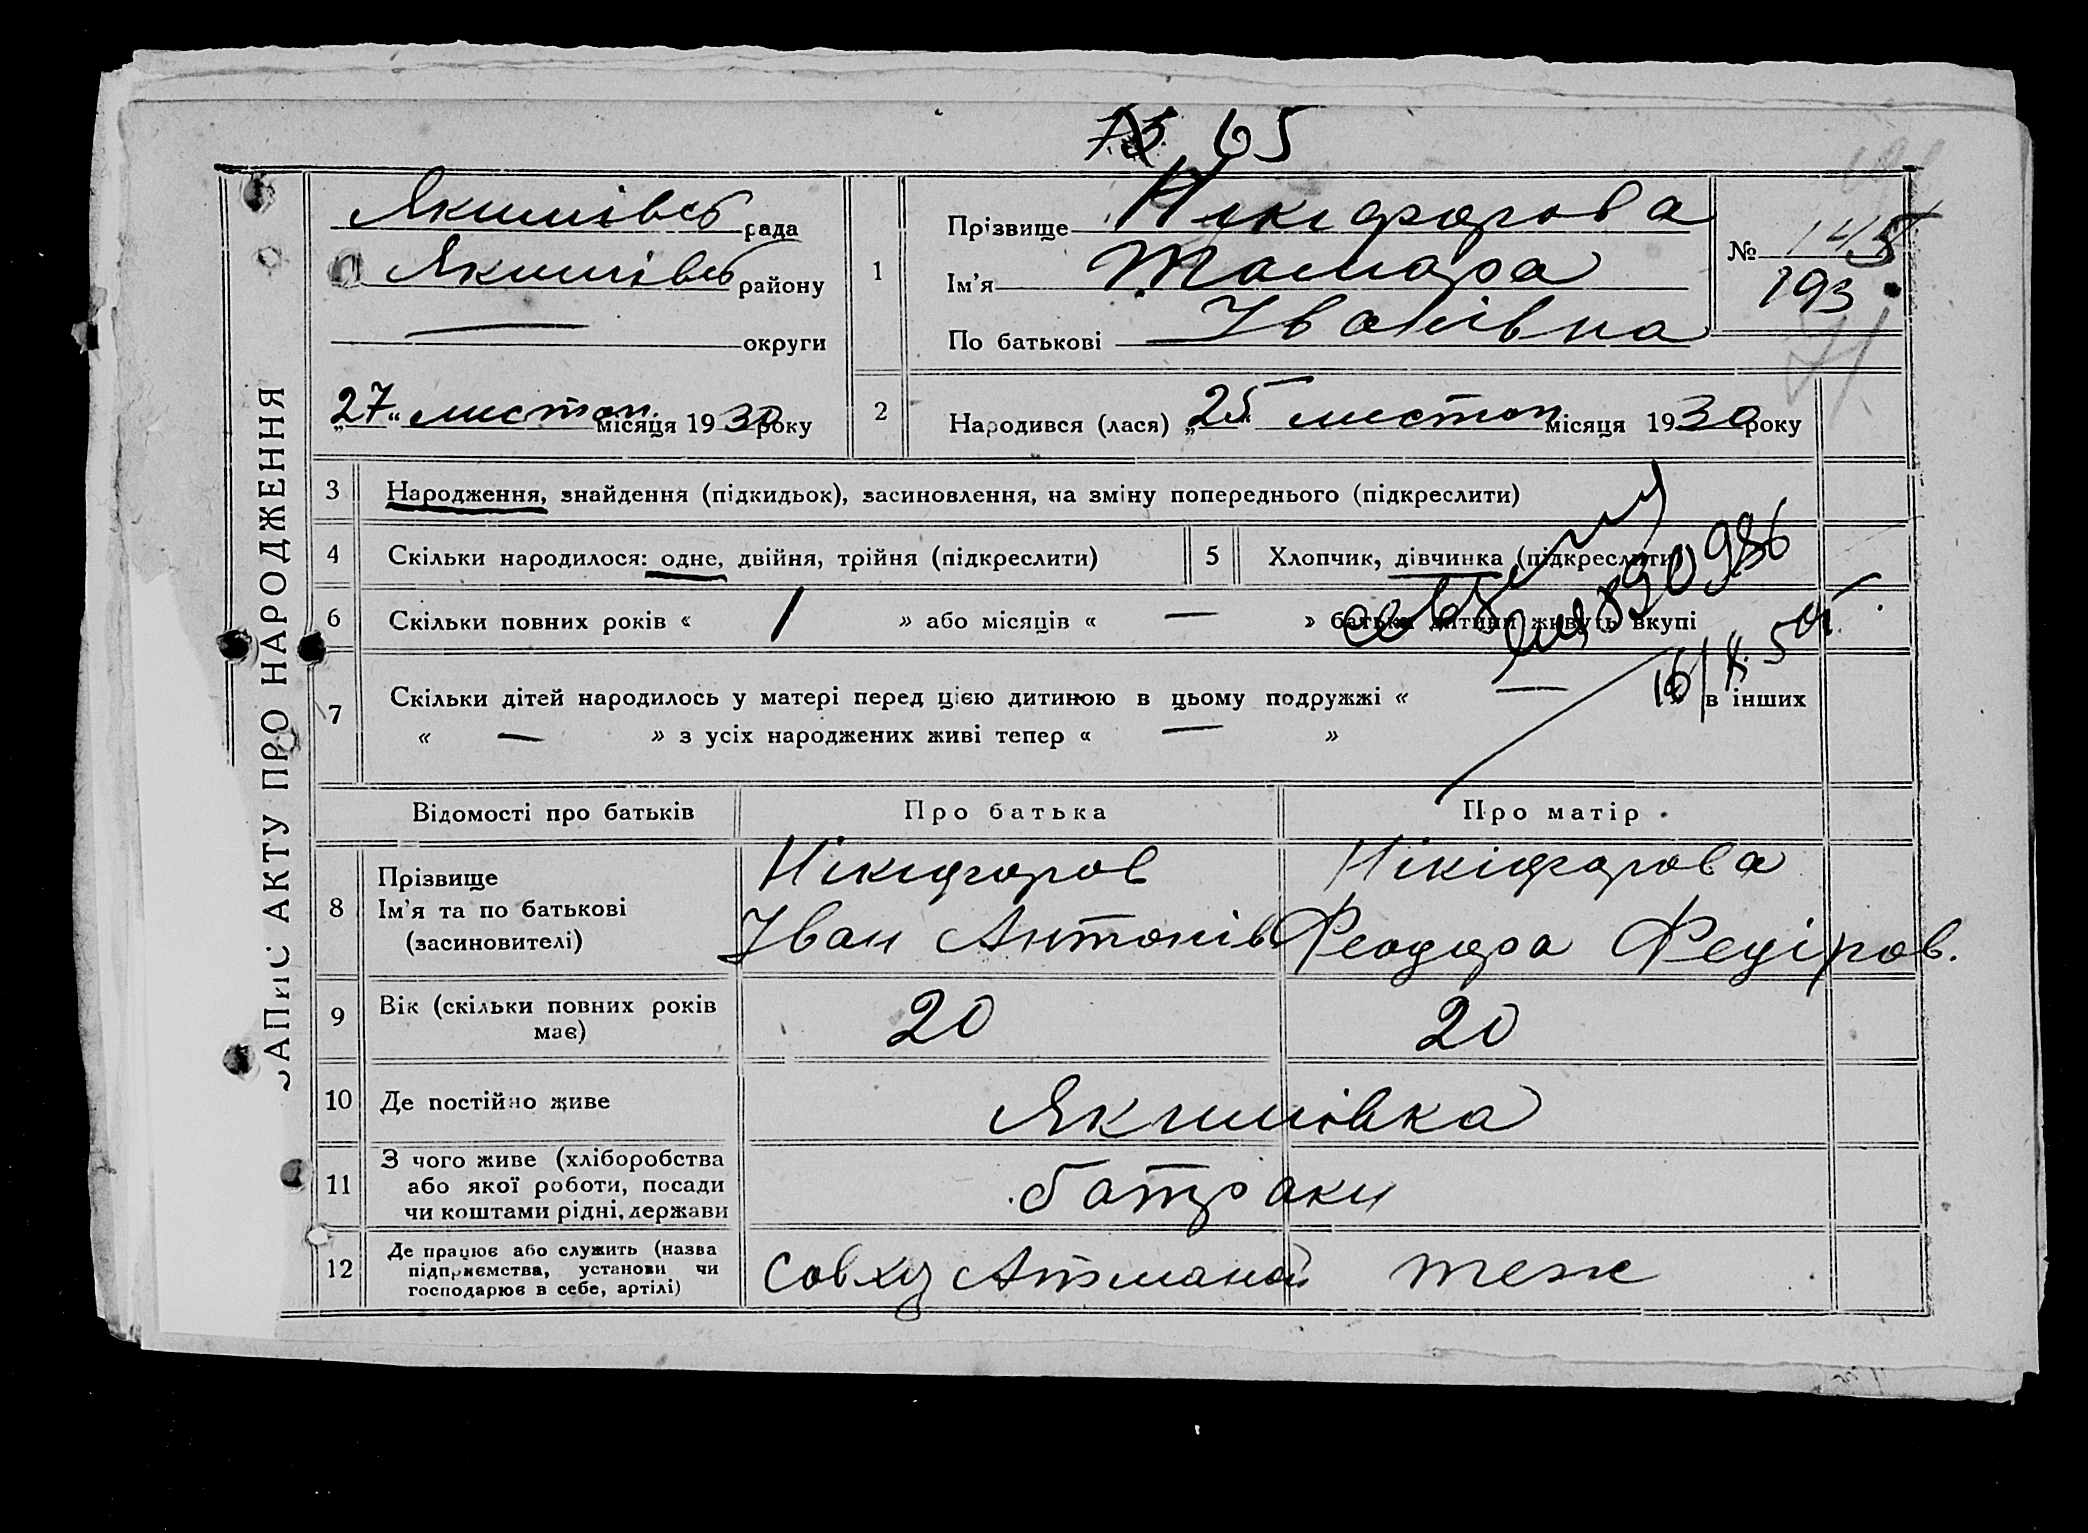 65
ЗАПИС АКТУ ПРО НАРОДЖЕННЯ
Якимівсь рада
Якимівсь району
— округи
„27“ листоп. місяця 1930 року
1
Прізвище Нікіфорова
Ім'я Тамара
По батькові Іванівна
№
193
71
2 Народився (лася) „25“ листоп місяця 1930 року
3 Народження, знайдення (підкидьок), засиновлення, на зміну попереднього (підкреслити)
4 Скільки народилося: одне, двійня, трійня (підкреслити)
5 Хлопчик, дівчинка (підкреслити)
6 Скільки повних років « 1 » або місяців « — » батьки дитини живуть вкупі
7 Скільки дітей народилось у матері перед цією дитиною в цьому подружжі « — » в інших
« — » з усіх народжених живі тепер « — »
Відомості про батьків Про батька Про матір
8 Прізвище
Ім'я та по батькові
(засиновителі)
Нікіфоров
Іван Антонів
Нікіфорова
Феодора Федіров.
9 Вік (скільки повних років має) 20 20
10 Де постійно живе Якимівка
11 З чого живе (хліборобства
або якої роботи, посади
чи коштами рідні, держави
батраки
12 Де працює або служить (назва
підприємства, установи чи
господарює в себе, артілі)
Совхоз Атманай теж